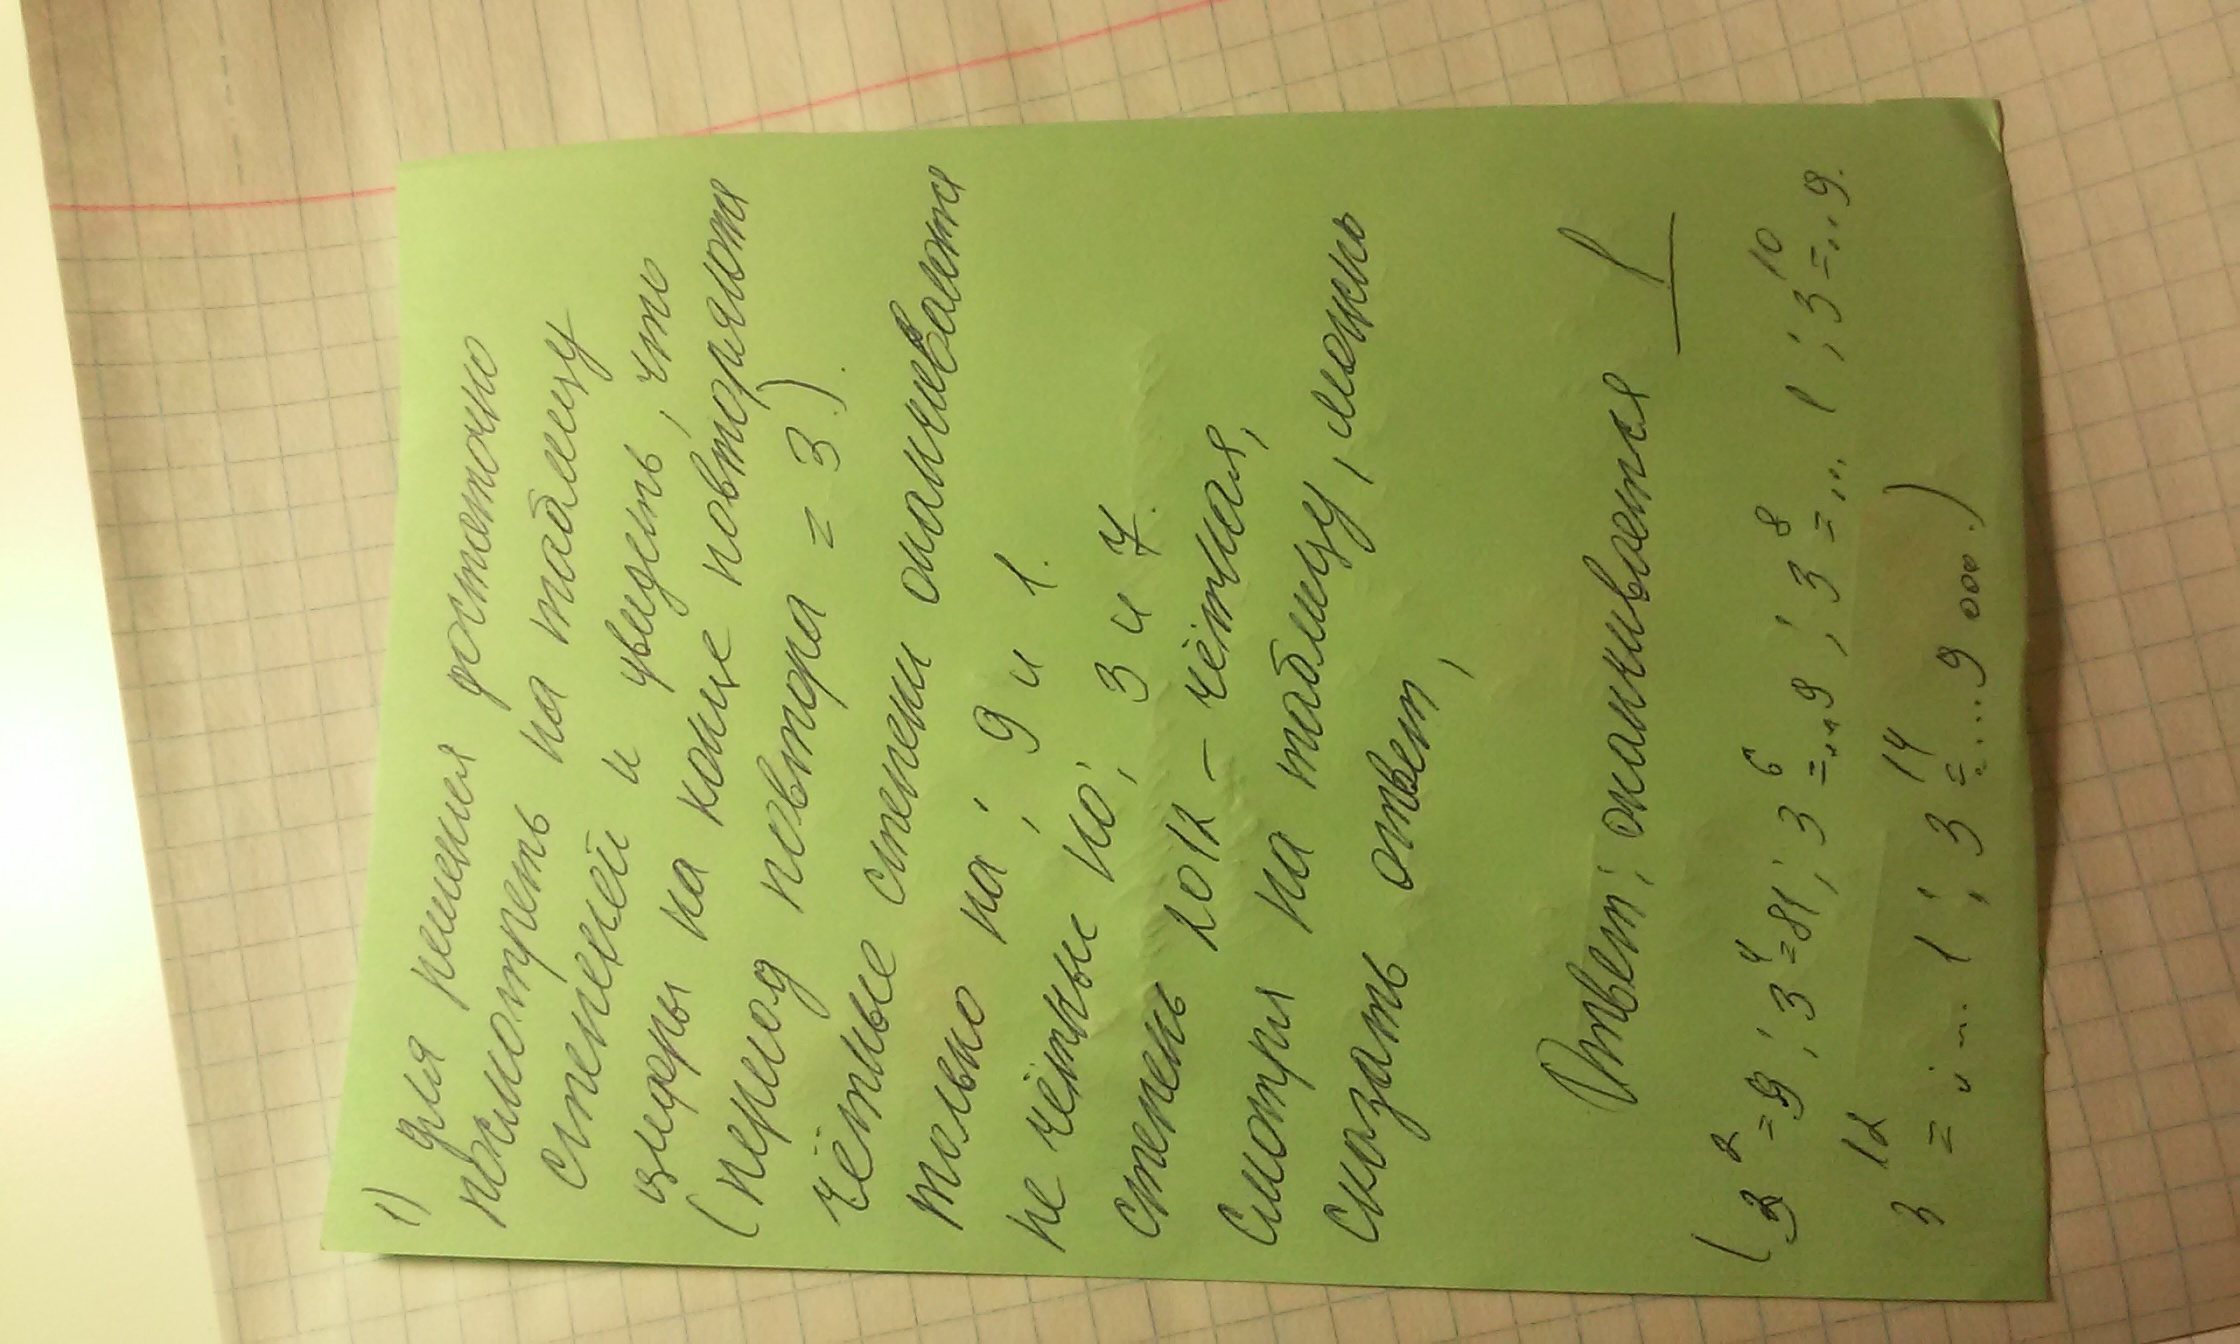 1)
Для решения достаточно
посмотреть на таблицу
степеней и увидеть, что
цифры на конце повторяются
(период повтора = 3).
чётные степени оканчивается
только на; 9 и 1.
не чётные на; 3 и 7.
степень 2012 – чётная,
смотря на таблицу, можно
сказать ответ,
Ответ; оканчивается 1
(3² = 9; 3⁴ = 81; 3⁶ = ...9; 3⁸ = ... 1; 3¹⁰ = ...9.
3¹² = .... 1; 3¹⁴ = ....9 ...)